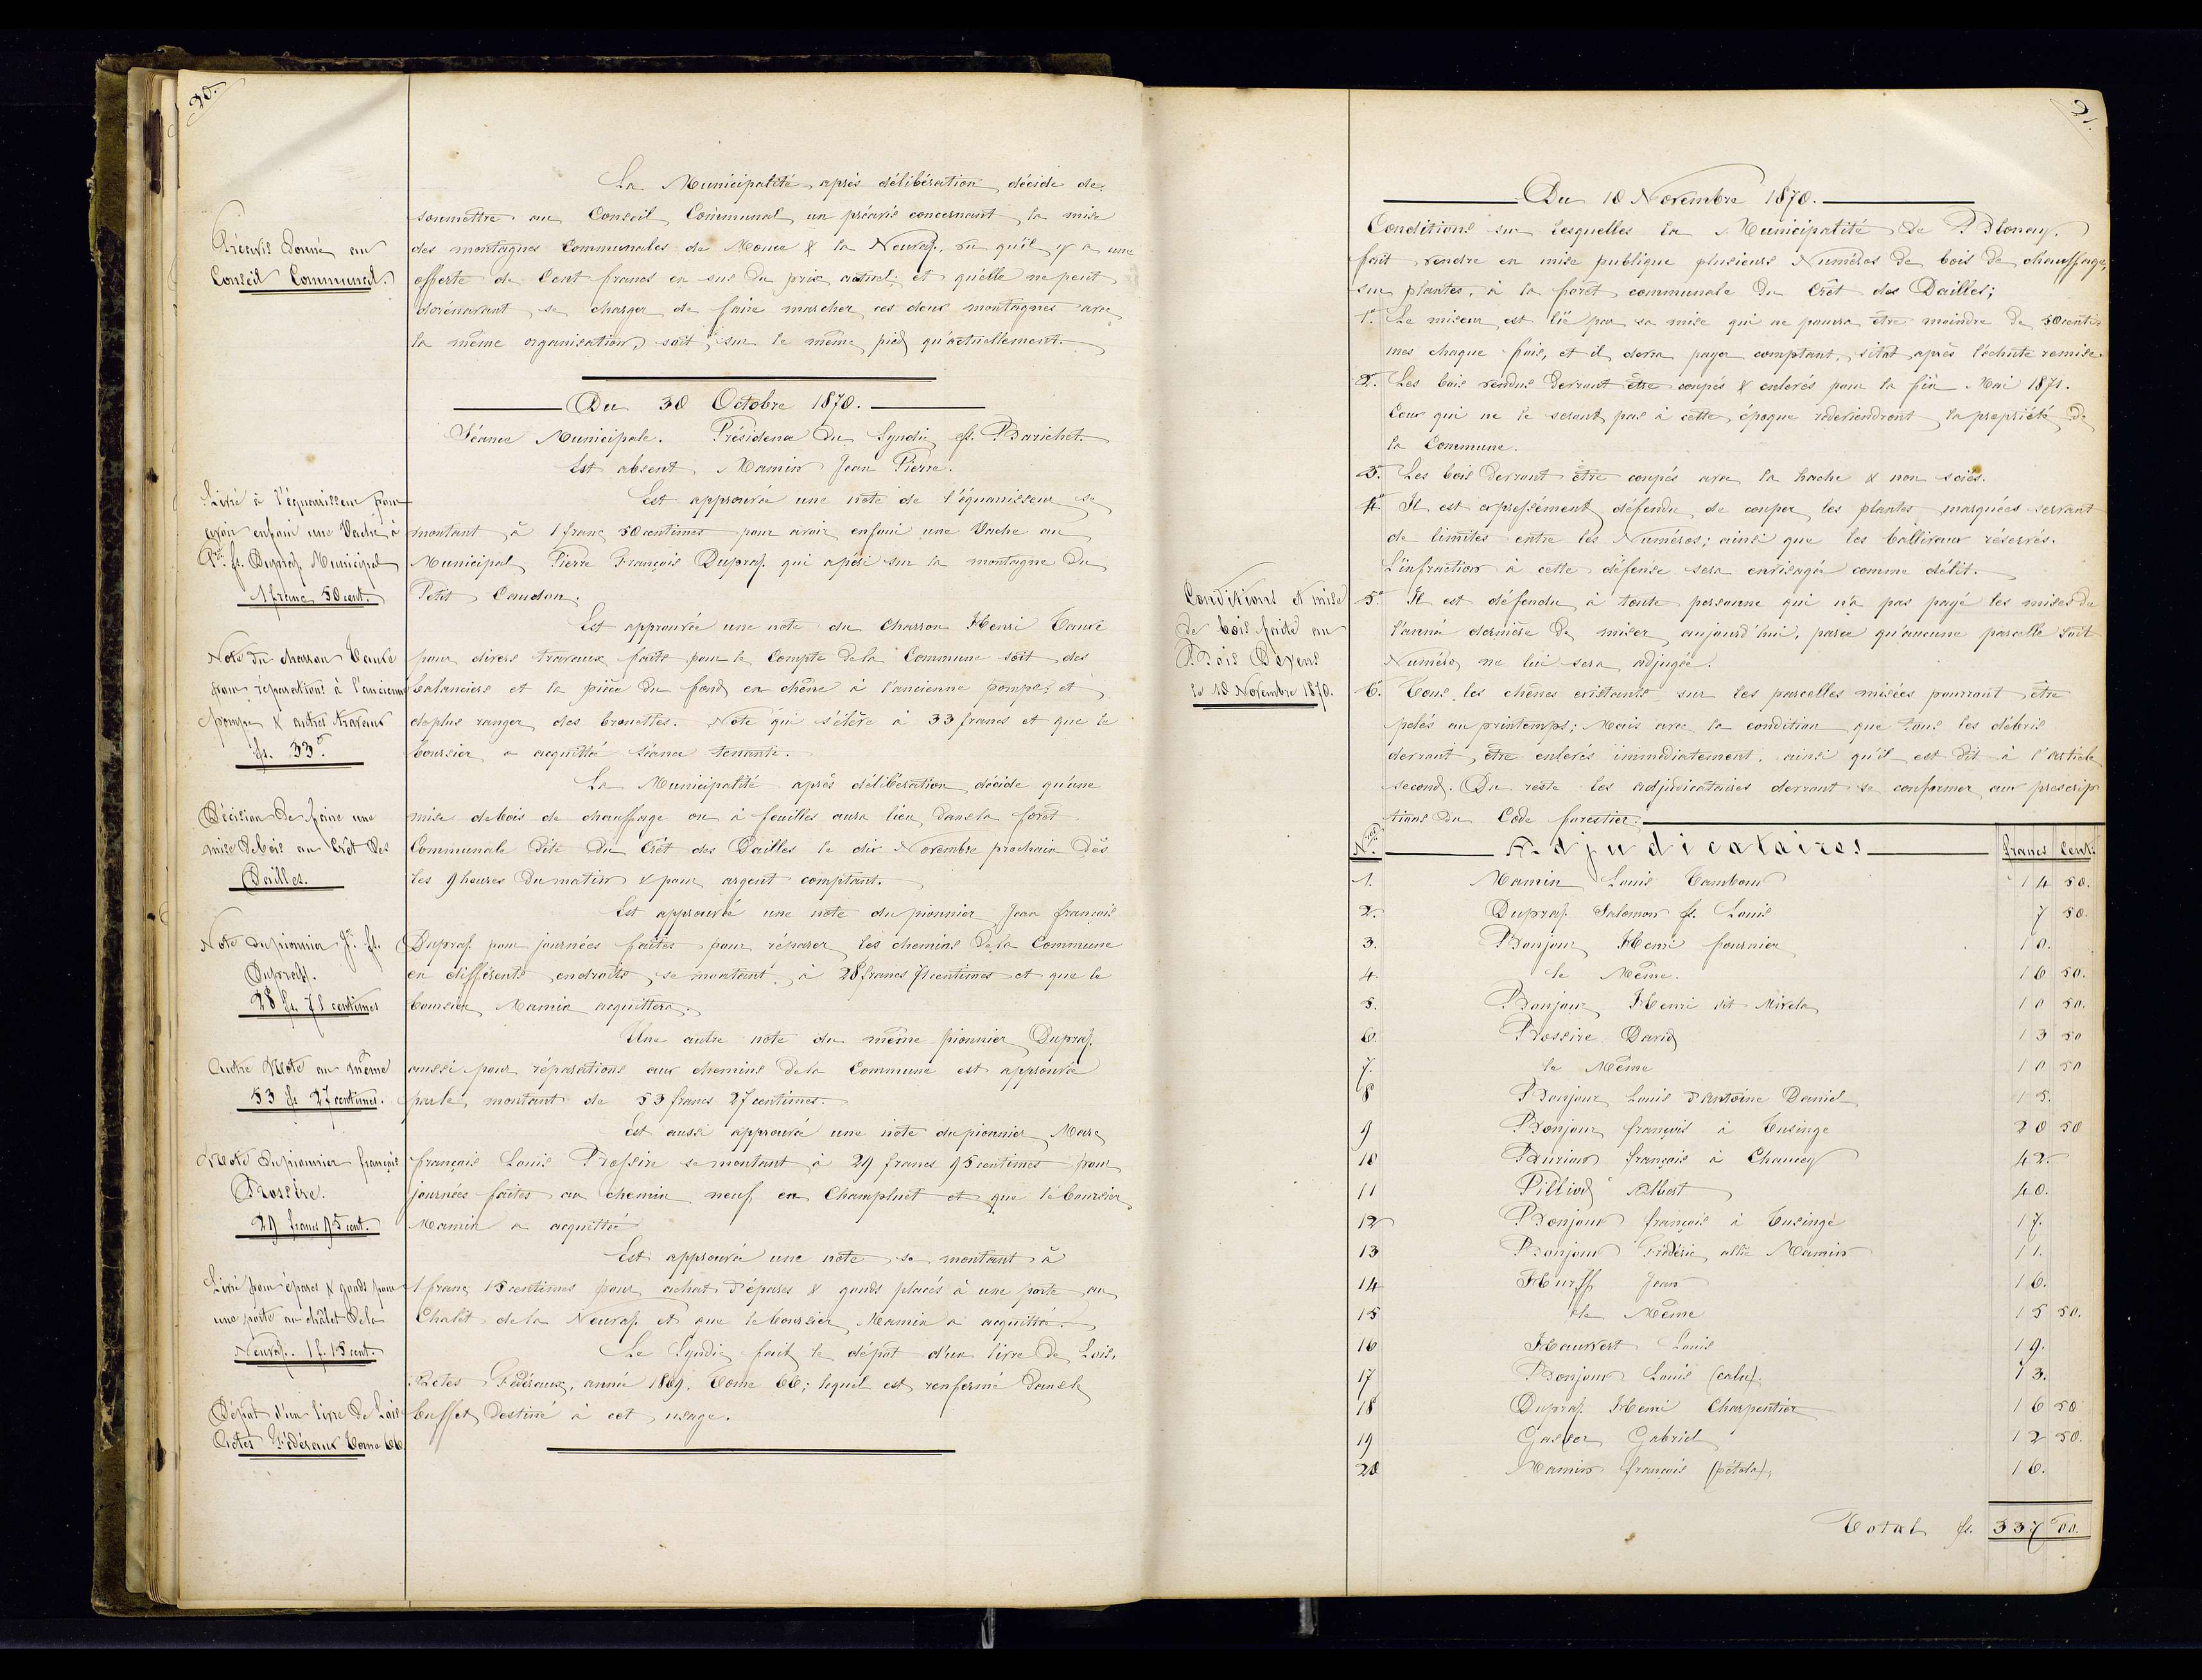 20.
La Municipalité, après délibération, décide de
soumettre au Conseil Communal, un préavis concernant, la mise
des montagnes Communales de Mouca & la Neuvaz, vu qu'il y a une
offerte de Cent francs en sus du prix actuel; et qu'elle ne peut
dorénavant, se charger de faire marcher ces deux montagnes avec
la même organisation, soit, sur le même pied qu'actuellement.
Préavis donné au
Conseil Communal.
Du 30 Octobre 1870.
Séance Municipale. Présidence du Syndic fs. Barichet.
Est absent, Mamin Jean Pierre.
Est approuvée une note de l'équarisseur se
montant à 1 franc 50 centimes pour avoir enfoui une Vache au
Municipal Pierre François Dupraz, qui a péri sur la montagne du
Petit Caudon.
Livré à l'équarisseur pour
avoir enfoui une Vache à
Pre. fs. Dupraz Municipal
1 franc 50 cent.
Est approuvée une note du Charron Henri Cauxe
pour divers travaux faits pour le Compte de la Commune soit des
balanciers et la pièce du fond en chêne à l'ancienne pompe; et
de plus ranger des brouettes. Note qui s'élève à 33 francs et que le
boursier a acquitté séance tenante.
Note du charron Cauxe
pour réparations à l'ancienne
pompe & autres travaux
fs. 33.
La Municipalité après délibération décide qu'une
mise de bois de chauffage ou à feuilles aura lieu, dans la forêt
Communale dite du Crêt des Dailles le dix Novembre prochain dès
les 9 heures du matin & pour argent comptant.
Décision de faire une
mise de bois au Crêt des
Dailles.
Est approuvée une note du pionnier Jean françois
Dupraz pour journées faites pour réparer les chemins de la Commune
en différents endroits, se montant à 28 francs 71 centimes et que le
boursier Mamin acquittera.
Note du pionnier Jn. fs.
Dupraz.
28 fs. 71 centimes
Une autre note du même pionnier Dupraz
aussi pour réparations aux chemins de la Commune est approuvée
par le montant de 53 francs 27 centimes.
Autre Note au même
53 fs 27 centimes.
Est aussi approuvée une note du pionnier Marc
françois Louis Bossire se montant à 29 francs 95 centimes pour
journées faites au chemin neuf en Champluet et que le boursier
Mamin a acquittée
Note du pionnier françois
Bossire.
29 francs 95 cent.
Est approuvée une note, se montant à
1 franc 15 centimes pour achat d'épares & gonds placés à une porte au
Chalet de la Neuvaz. et que le boursier Mamin a acquittée.
Livré pour épares & gonds pour
une porte au châlet de la
Neuvaz. 1 f. 15 cent.
Le Syndic fait le dépôt d'un livre de Lois,
Actes Fédéraux, année 1869, Tome 66; lequel est renfermé dans le
buffet destiné à cet usage.
Dépôt d'un livre de Lois
Actes Fédéraux Tome 66
21.
Du 10 Novembre 1870.
Conditions sur lesquelles la Municipalité de Blonay.
fait vendre en mise publique plusieurs Numéros de bois de chauffage,
sur plantes, à la forêt communale du Crêt des Dailles;
1o. Le miseur est lié par sa mise qui ne pourra être moindre de 50 centi-
mes chaque fois, et il devra payer comptant, sitôt après l'échute remise.
2o. Les bois vendus devront être coupés & enlevés pour la fin Mai 1871.
Ceux qui ne le seront pas à cette époque redeviendront la propriété de
la Commune.
3o. Les bois devront être coupés avec la hache & non sciés.
4o. Il est expressément défendu de couper les plantes marquées servant
de limites entre les Numéros; ainsi que les ballivaux réservés.
L'infraction à cette défense sera envisagée comme délit.
5o. Il est défendu à toute personne qui n'a pas payé les mises de
l'année dernière de miser aujourd'hui, parce qu'aucune parcelle soit
Numéro, ne lui sera adjugée.
6o. Tous les chênes existants sur les parcelles misées pourront être
pelés au printemps; Mais avec la condition que tous les débris
devront être enlevés immédiatement. ainsi qu'il est dit à l'article
second. Du reste les adjudicataires devront se conformer aux prescrip-
tions du Code forestier.
Conditions et mise
de bois faite au
Bois Devens
le 10 Novembre 1870.
Nros Adjudicataires francs Cent.
1. Mamin Louis Tambour 14 50.
2. Dupraz Salomon fs. Louis 7 50.
3. Bonjour Henri fournier 10.
4. le Même. 16 50.
5. Bonjour Henri dit Mirela 10 50.
6. Bossire David 13 50
7. le Même 10 50
8 Bonjour Louis d'Antoine Daniel 15.
9 Bonjour françois à Tusinge 20 50
10 Buriaux françois à Chaucey 42.
11 Pilliod Albert 40.
12 Bonjour françois à Tusinge 17.
13 Bonjour Frédéric allié Mamin 11.
14 Hurff Jean 16.
15 le Même 15 50.
16 Hauvert Louis 19.
17 Bonjour Louis (calu). 13.
18 Dupraz Henri Charpentier 16 50
19 Gasser Gabriel 12 50.
20 Mamin françois (pétola). 16.
Total fs. 337 00.